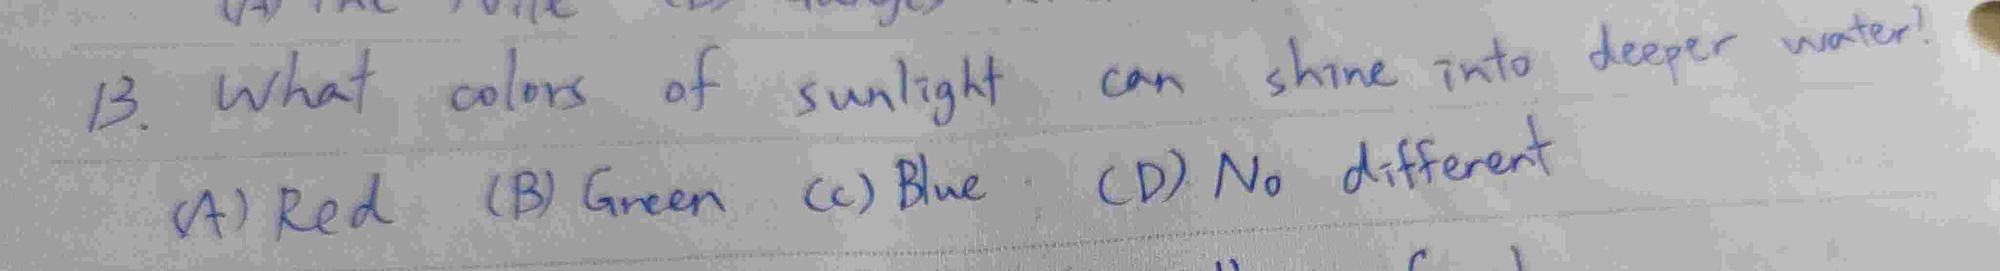 13. What colors of sunlight can shine into deeper water?
(A) Red (B) Green (C) Blue (D) No different